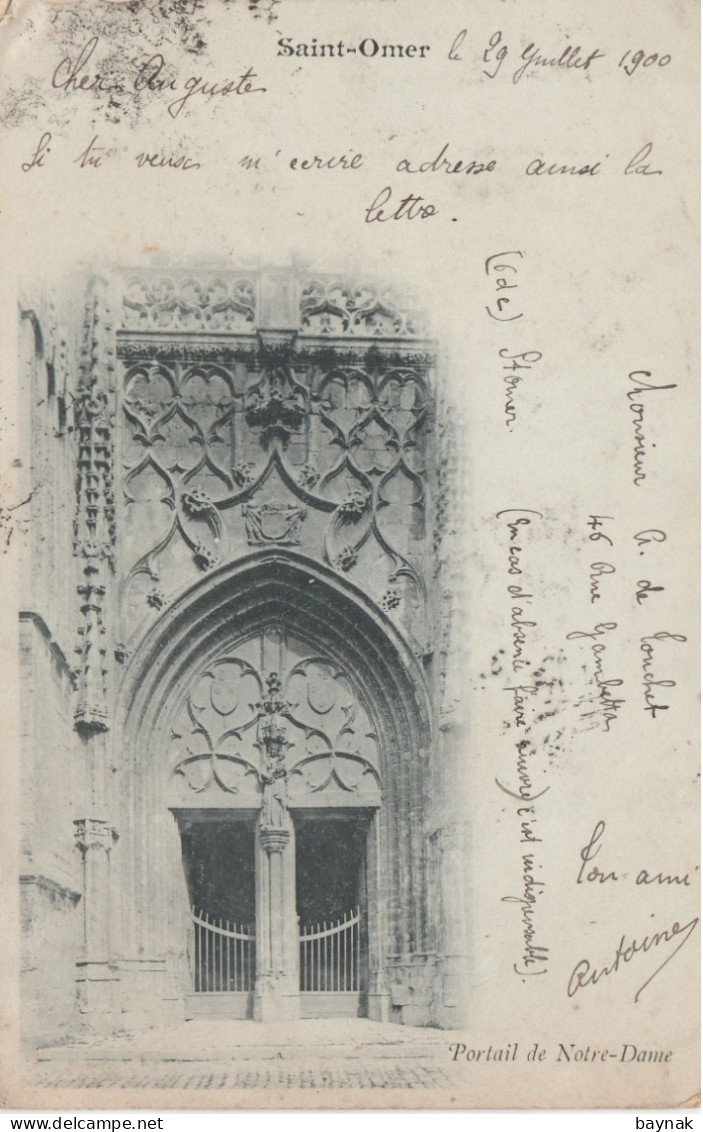 Saint-Omer le 29 Juillet 1900
Cher Auguste
Si tu veux m'écrire adresse ainsi la
lettre.
Monsieur A. de Touchet
46 Rue Gambetta
(P de C) St Omer.
(En cas d'absence faire suivre) c'est indispensable).
Ton ami
Antoine
Portail de Notre-Dame
baynak